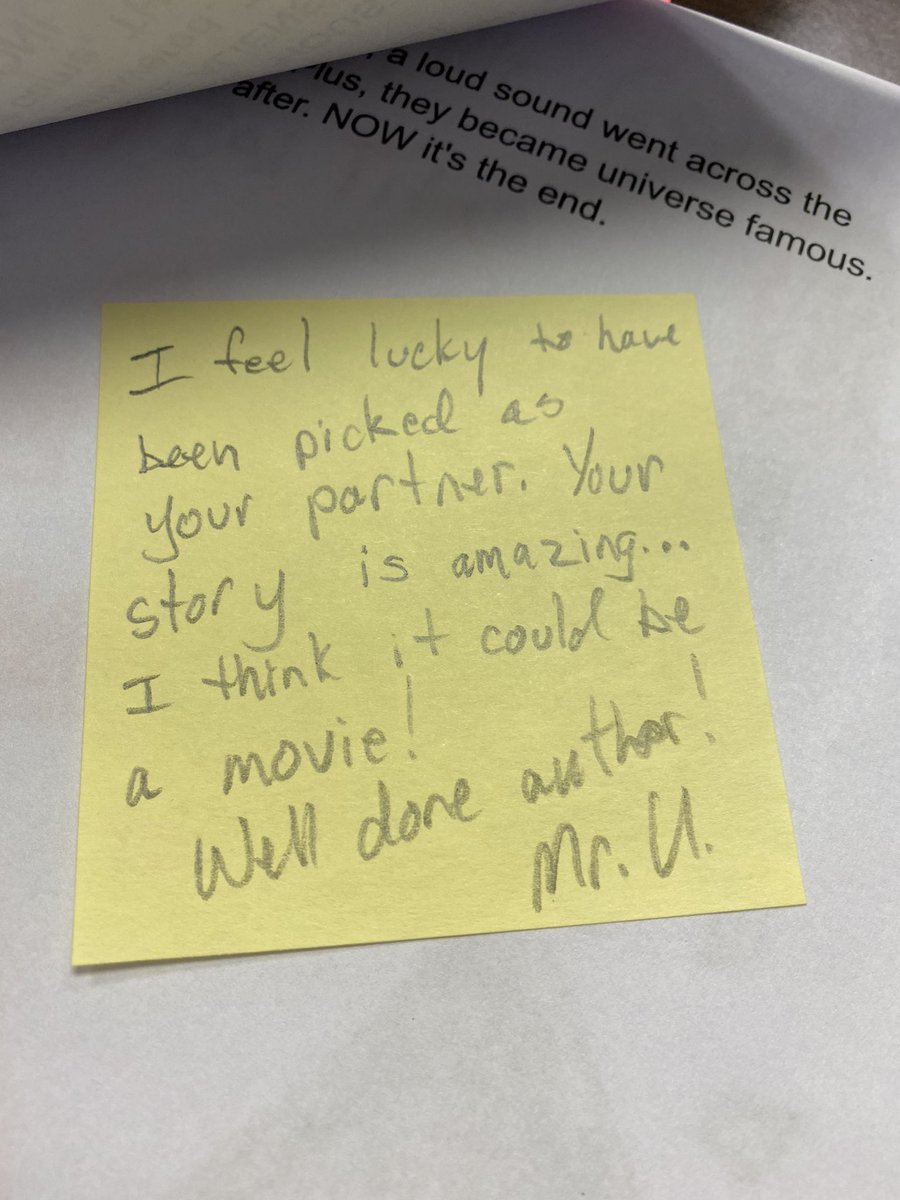 a loud sound went across the
Plus, they became universe famous.
after. NOW it's the end.
I feel lucky to have
been picked as
your partner. Your
story is amazing...
I think it could be
a movie!
Well done author!
Mr. U.